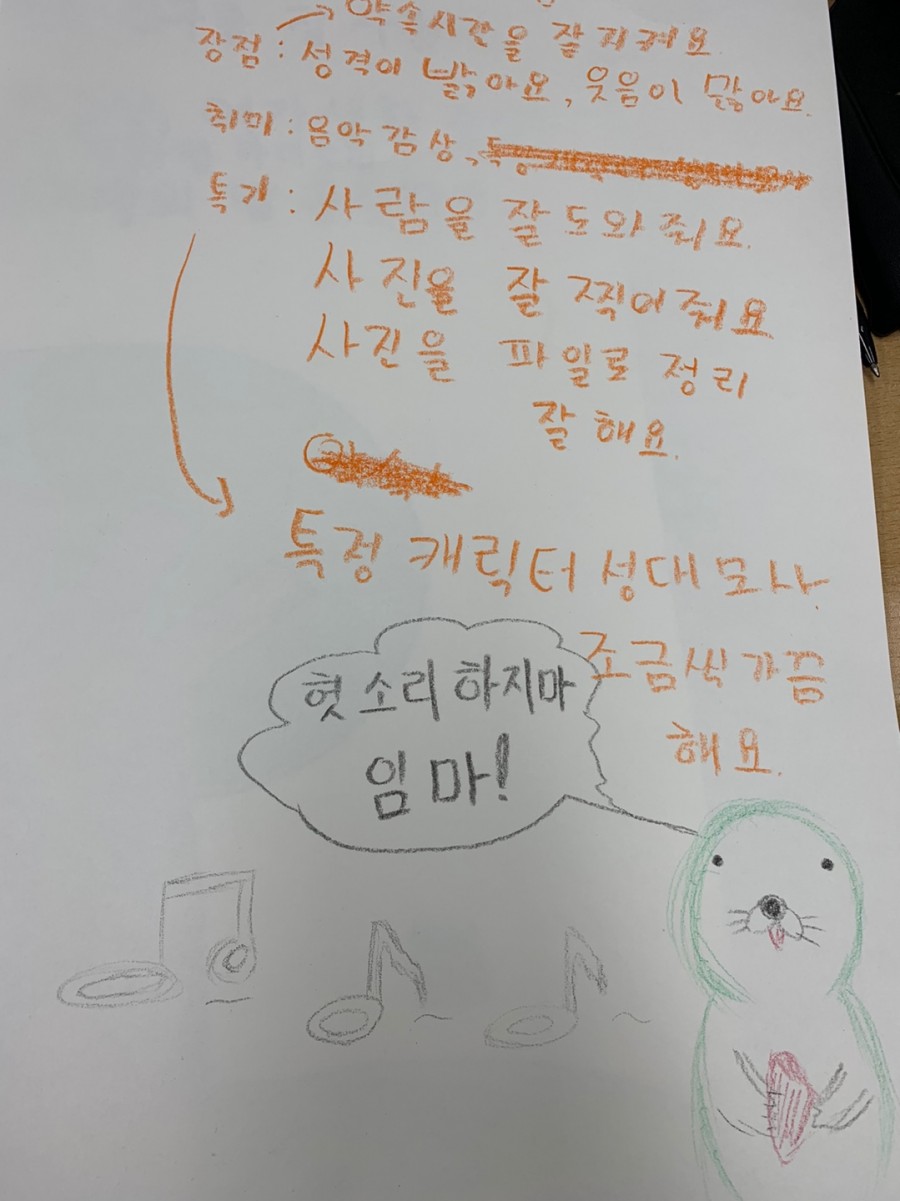 약속시간을 잘지켜요
장점 : 성격이 밝아요, 웃음이 많아요.
취미 : 음악감상,
특기 : 사람을 잘 도와줘요.
사진을 잘 찍어줘요.
사진을 파일로 정리
잘 해요.
특정 캐릭터 성대모사.
조금씩 가끔
해요.
헛소리하지마
임마!